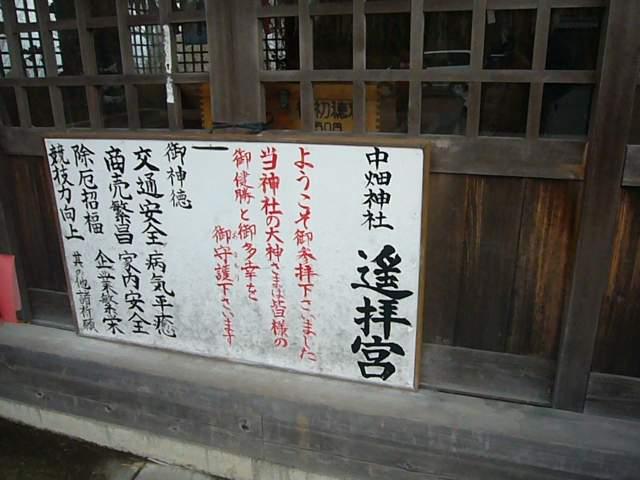 中畑神社 遥拝宮
ようこそ御参拝下さいました
当神社の大神さまは皆様の
御健勝と御多幸を
御守護下さいます
一 御神徳
交通安全 病気平癒
商売繁昌 家内安全
除厄招福 企業繁栄
競技力向上 其の他諸祈願